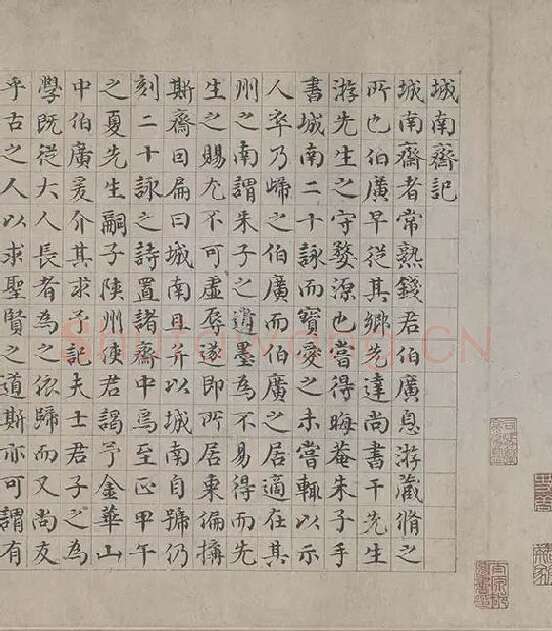 城南齋記
城南齋者常熟錢君伯廣息游藏脩之
所也伯廣早從其鄉先達尚書干先生
游先生之守婺源也嘗得晦菴朱子手
書城南二十詠而寳愛之未嘗輒以示
人卒乃歸之伯廣而伯廣之居適在其
州之南謂朱子之遺墨為不易得而先
生之賜尤不可虛辱遂即所居東偏搆
斯齋曰扁曰城南且并以城南自號仍
刻二十詠之詩置諸齋中焉至正甲午
之夏先生嗣子陝州使君謁予金華山
中伯廣爰介其求予記夫士君子之為
學既從大人長者為之依歸而又尚友
乎古之人以求聖賢之道斯亦可謂有